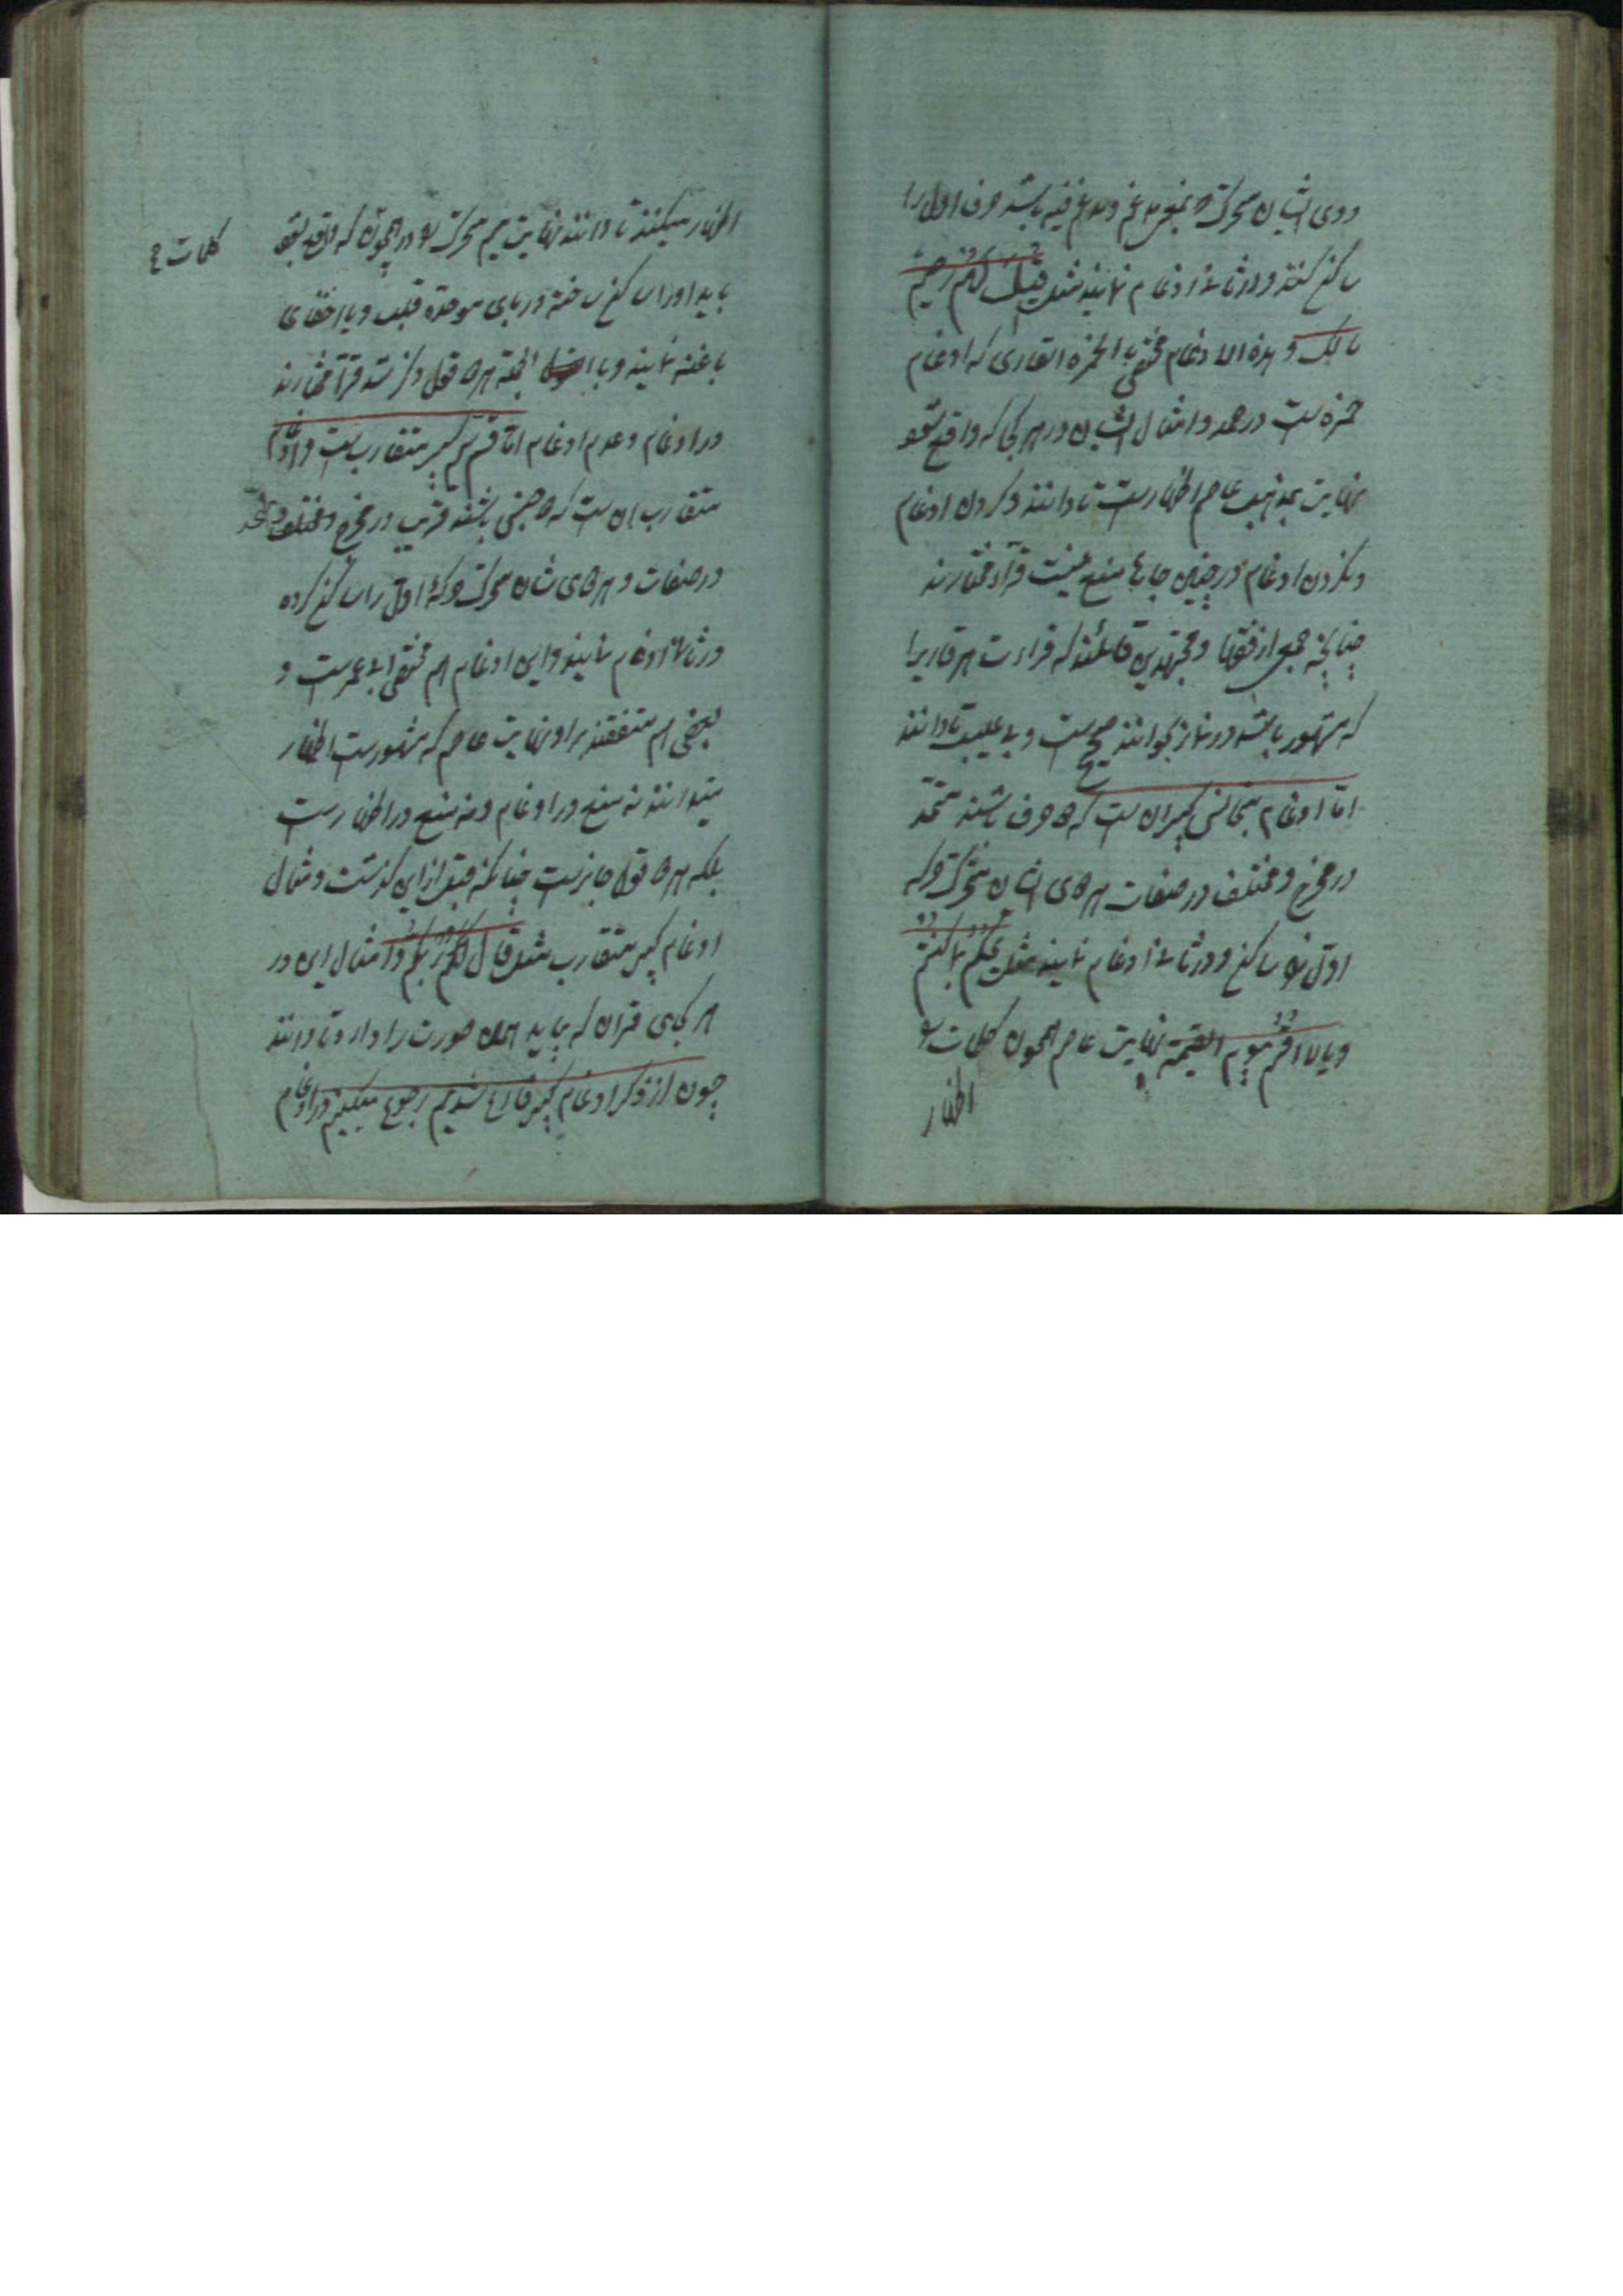 دوی ایشان متحرک بمعنی مدغم و مدغم فیه باشد حرف اول را
ساکن کنند و در ثانی ادغام نمایند مثل قیل لهم رحیم
مالک و هذه الادغام مختص بالحمزة القاری که ادغام
حمزه است در همه و امثال ایشان در هر کجا که واقع شود
نهایت بمذهب عاصم اظهار است تا دانند و کردن ادغام
و نکردن ادغام در چنین جاها منع نیست قرآء مختارند
چنانچه جمعی از فقها و مجتهدین قائلند که قراءت هر قاریرا
که مشهور باشد در نماز بخوانند صحیح است و بی عیب تا دانند
اما ادغام متجانس کبیر آن است که دو حرف باشند متحد
در مخرج و مختلف در صفات هر دوی ایشان متحرک و که
اول شود ساکن و در ثانی ادغام نمایند مثل یحکم بما کنتم
و یا لا اقسم بیوم القیمة نهایت عاصم همچون کلمات
اظهار
اظهار میکنند تا دانند نهایت میم متحرک در همچون که واقع شود
کلمات
باید او را ساکن ساخته در بای موحده قلب و یا اخفای
با غنه نمایند و با البته هر دو قول ذکر شد قرآء مختارند
در ادغام و عدم ادغام اما قسم کبیر متقارب است و ادغام
متقارب آن است که دو جنس باشند قریب در مخرج و متحد
در صفات و هر دوی شان متحرک و که اول را ساکن کرده
در ثانی ادغام نمایند و این ادغام هم مختص ابی عمر است و
بعضی هم متفقند براو نهایت عاصم که مشهور است اظهار
میدانند نه منع در ادغام و نه منع در اظهار است
بلکه هر دو قول جایز است چنانکه قبل از این گذشت و مثال
ادغام کبیر متقارب مثل قال لکم ربکم و امثال این در
هر کجای قرآن که بیاید همان صورت را دارد تا دانند
چون از ذکر ادغام کبیر فارغ شدیم رجوع میکنیم در ادغام